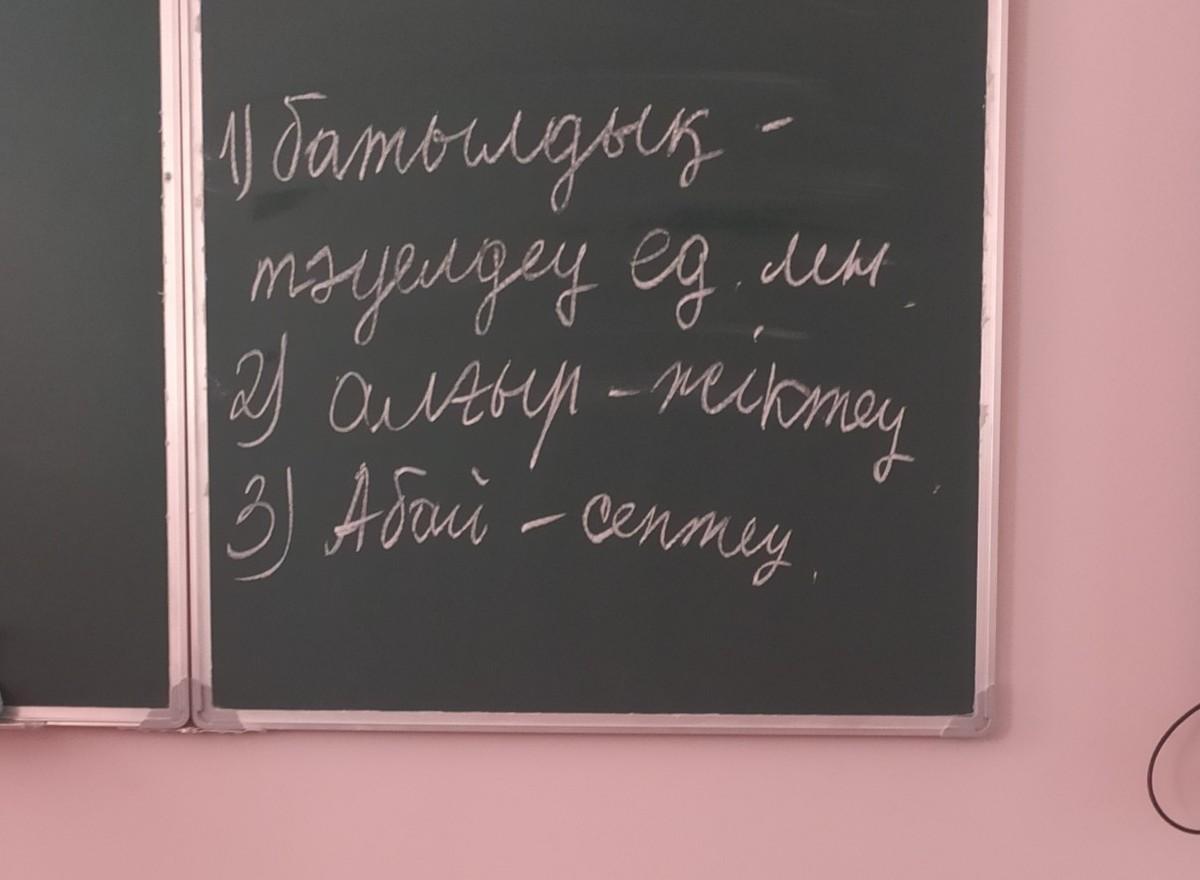 1) батылдық -
тәуелдеу ед. мен
2) алғыр - жіктеу
3) Абай - септеу.